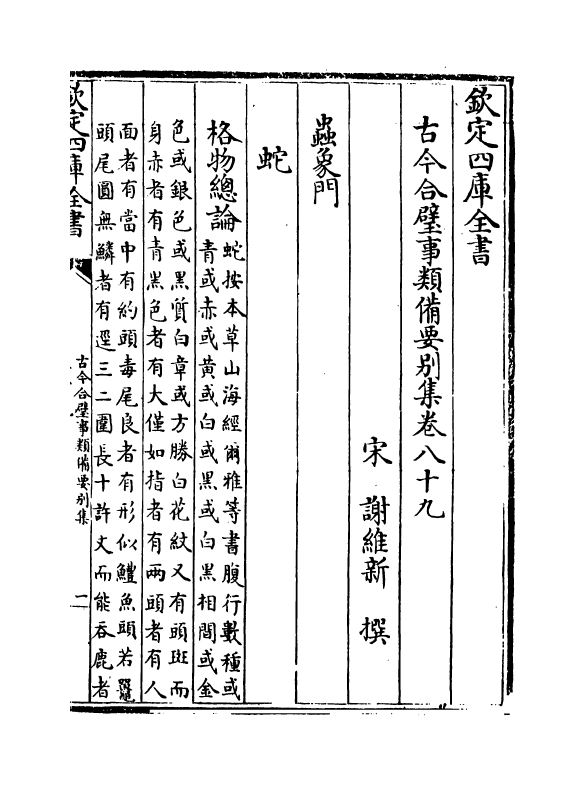 欽定四庫全書
古今合璧事類備要別集卷八十九
宋 謝維新 撰
蟲象門
蛇
格物總論
蛇按本草山海經爾雅等書腹行數種或
青或赤或黃或白或黑或白黑相間或金
色或銀色或黑質白章或方勝白花紋又有頭斑而
身赤者有青黑色者有大僅如指者有兩頭者有人
面者有當中有約頭毒尾良者有形似鱧魚頭若鼉
頭尾圓無鱗者有逕三二圍長十許丈而能吞鹿者
欽定四庫全書
古今合璧事類備要別集
一